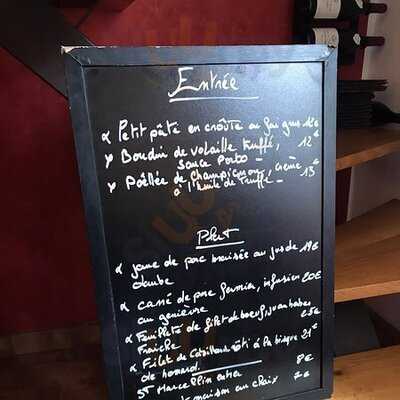 Entrée
Petit pâté en croûte au foie gras 12€
Boudin de volaille truffé, 12€
sauce Porto -
Poêlée de Champignons, crème 13€
à l'huile de Truffe -
Plat
joue de porc braisée au jus de 19€
daube
carré de porc fermier, infusion 20€
au genièvre
Feuilleté de filet de boeuf,
Fraîche
Filet de Cabillaud rôti à la bisque 21€
de homard
St Marcellin entier 8€
maison au choix 7€